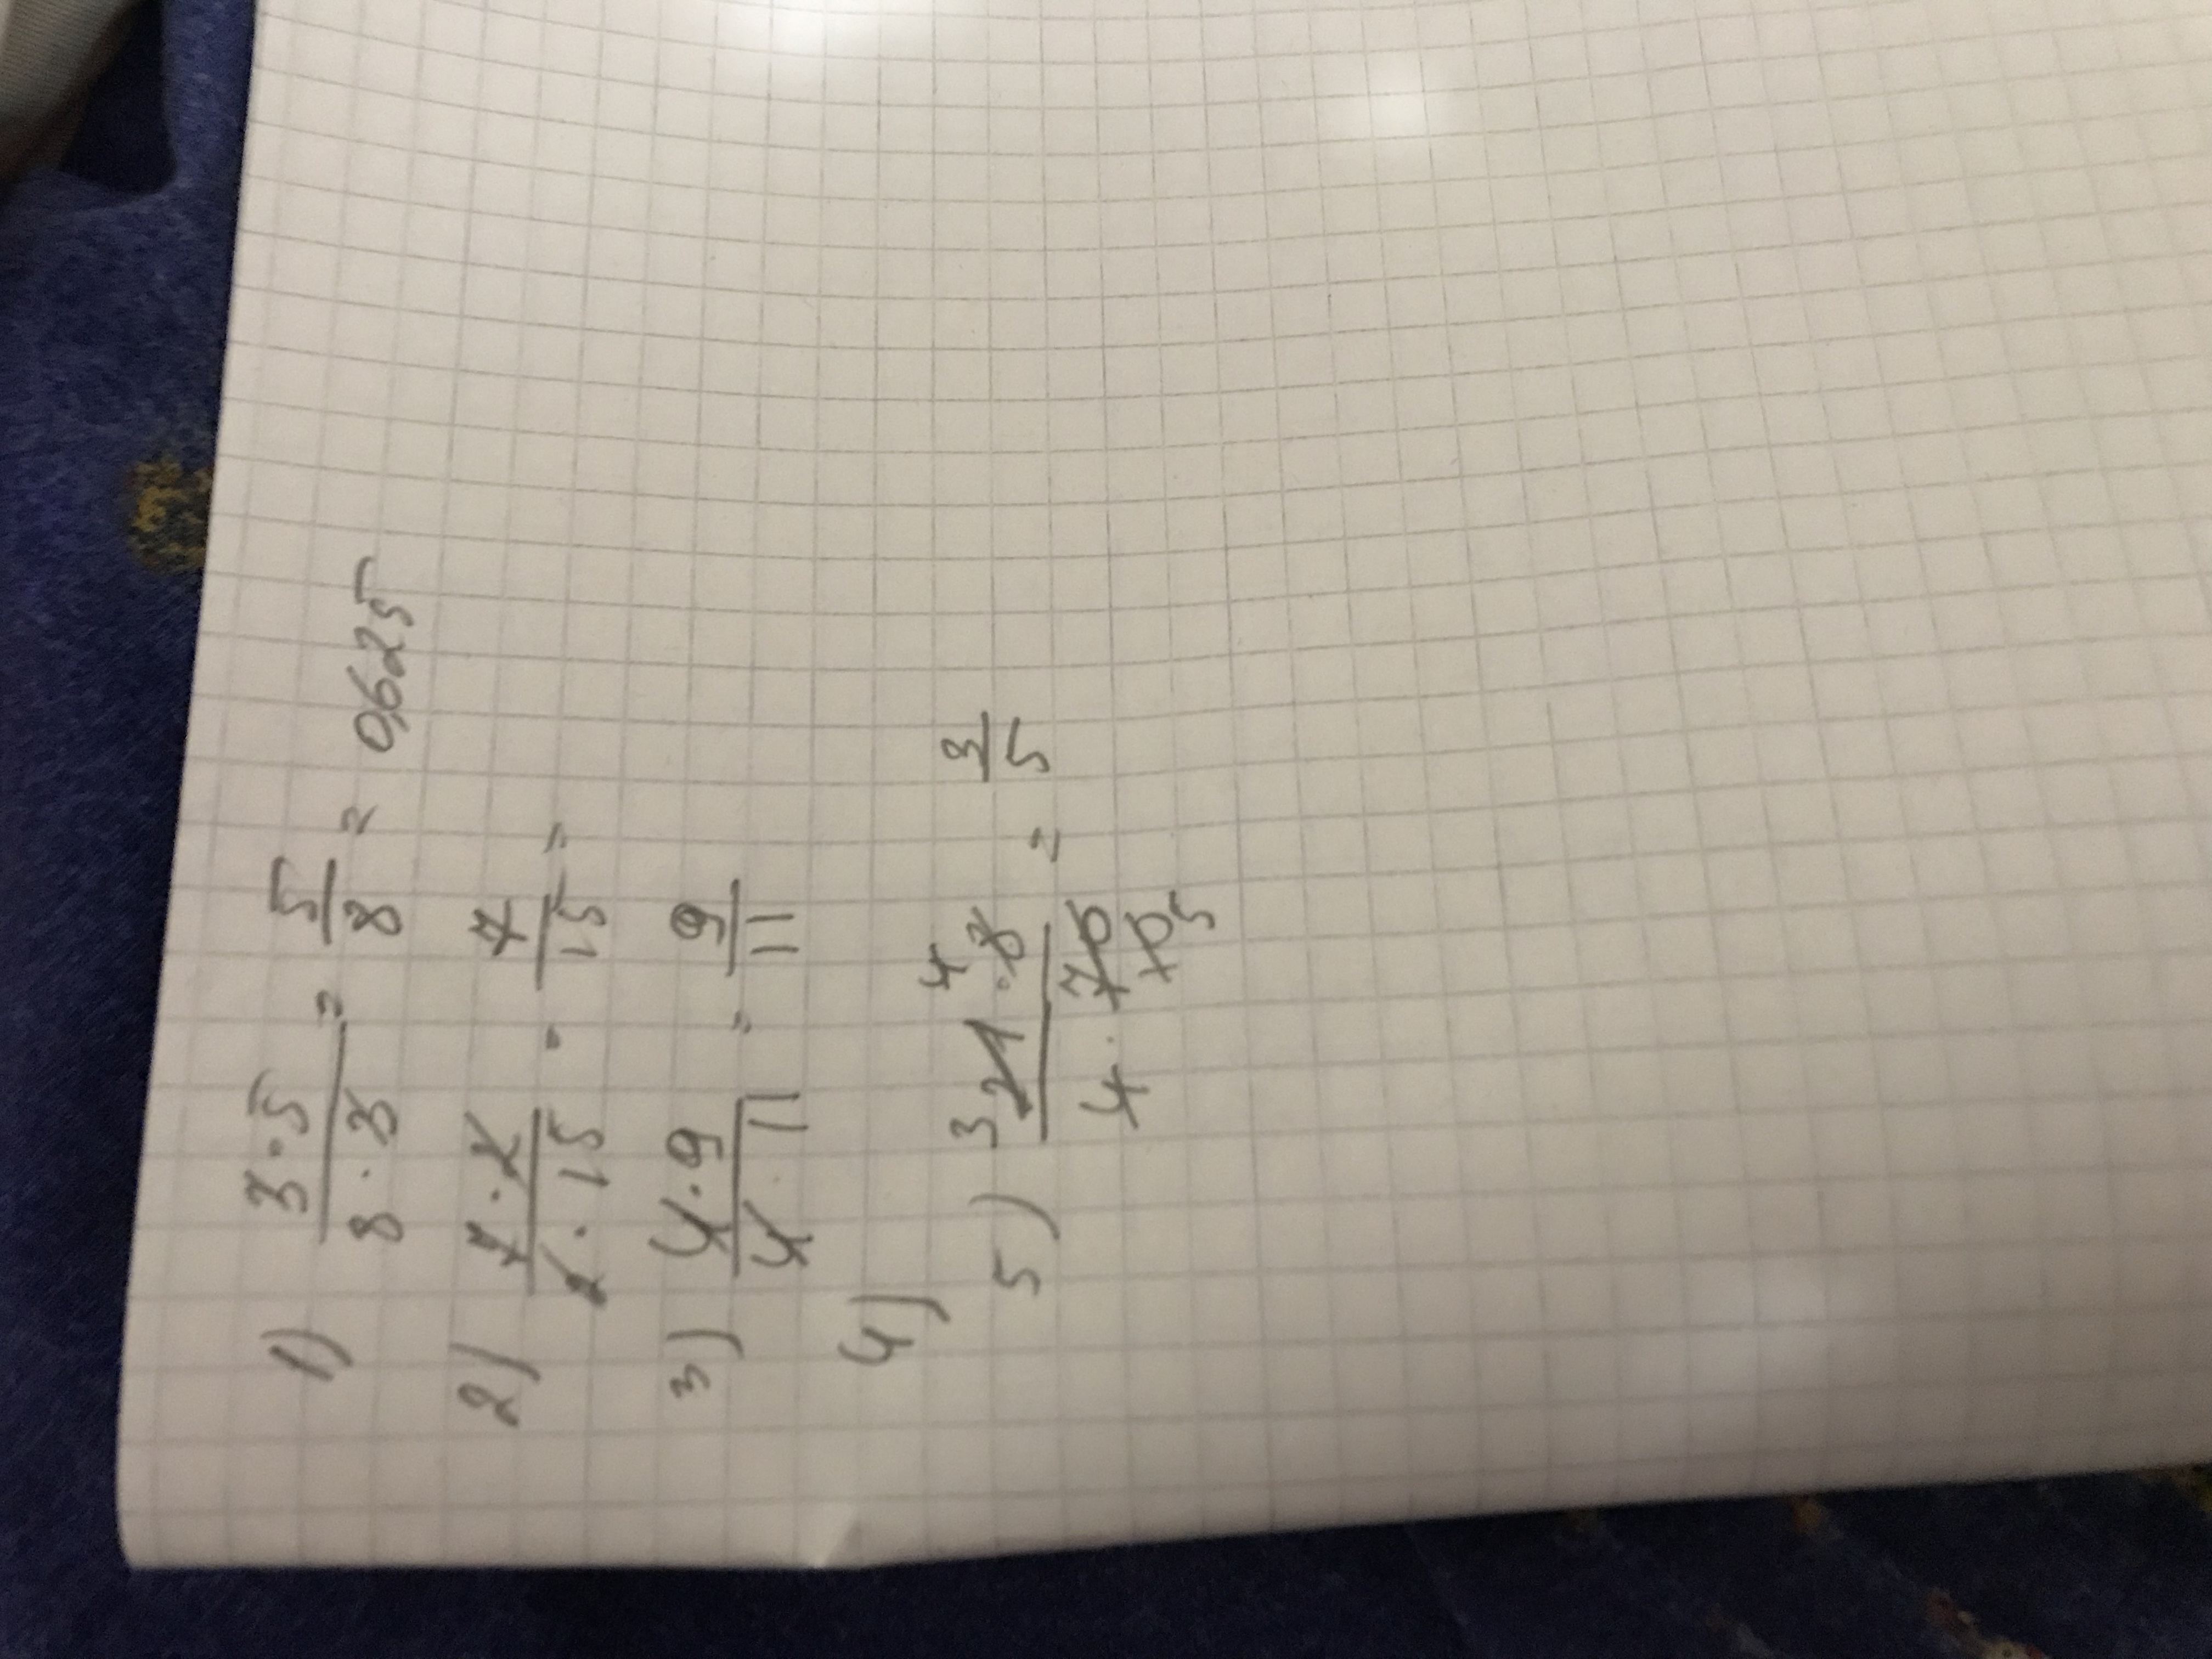 1) 3·5/8·3 = 5/8 = 0,625
2) 7·2/2·15 = 7/15 =
3) 4·9/4·11 = 9/11
4)
5) 3 21·8 4/4·70 7 10 5 = 3/5